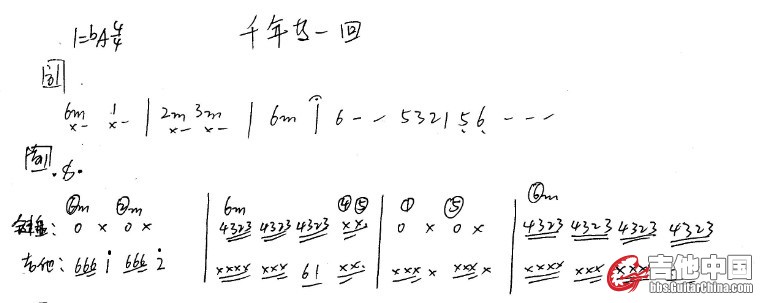 1=bA 4/4 千年等一回
前
6m 1 | 2m 3m | 6m i 6 - - 532156 - - -
x- x- x- x-
前.8.
⑥m ②m 6m ④⑤ ① ⑤ ⑥m
键盘: 0 x 0 x | 4323 4323 4323 xx. | 0 x 0 x | 4323 4323 4323 4323
吉他: 666 i 666 2 | xxxx xxx 61 xx. | xxx x xxx x | xxxx xxx xxx
吉他中国
bbs.GuitarChina.com